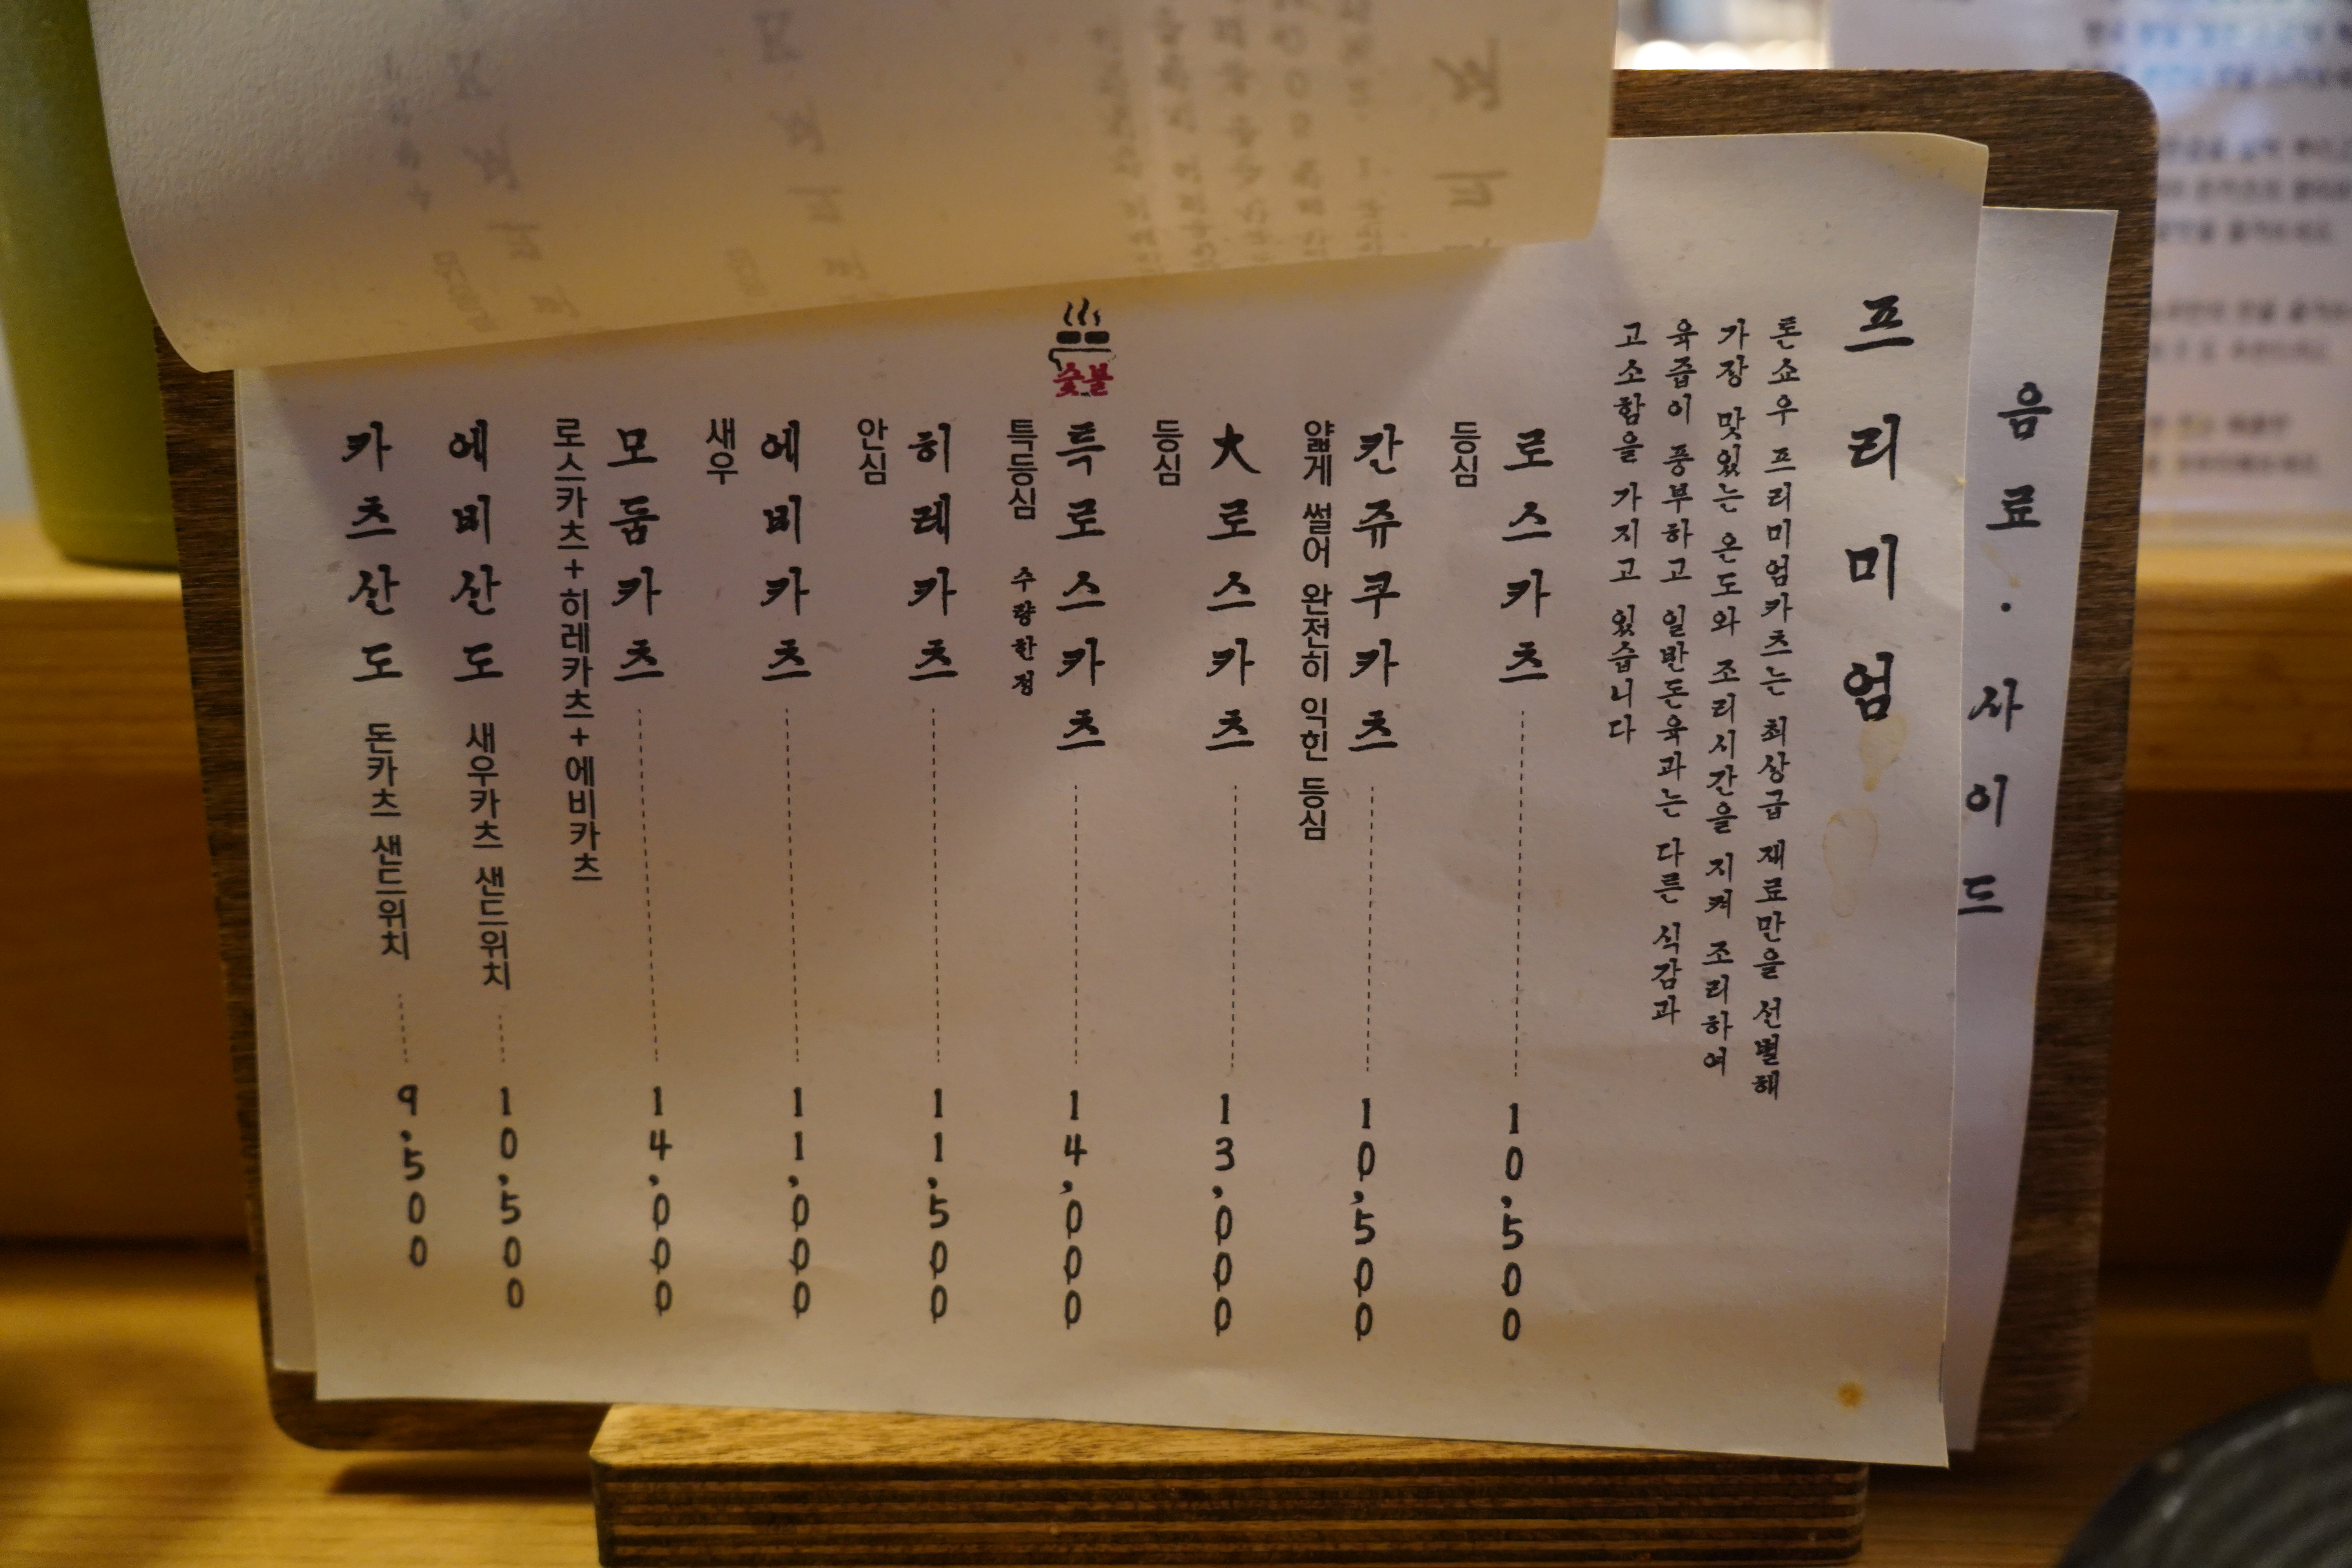 음료·사이드
프리미엄
톤쇼우 프리미엄카츠는 최상급 재료만을 선별해
가장 맛있는 온도와 조리시간을 지켜 조리하여
육즙이 풍부하고 일반돈육과는 다른 식감과
고소함을 가지고 있습니다
로스카츠 10,500
등심
칸쥬쿠카츠 10,500
얇게 썰어 완전히 익힌 등심
大로스카츠 13,000
등심
숯불
특로스카츠 14,000
특등심 수량한정
히레카츠 11,500
안심
에비카츠 11,000
새우
모둠카츠 14,000
로스카츠+히레카츠+에비카츠
에비산도 새우카츠 샌드위치 10,500
카츠산도 돈카츠 샌드위치 9,500